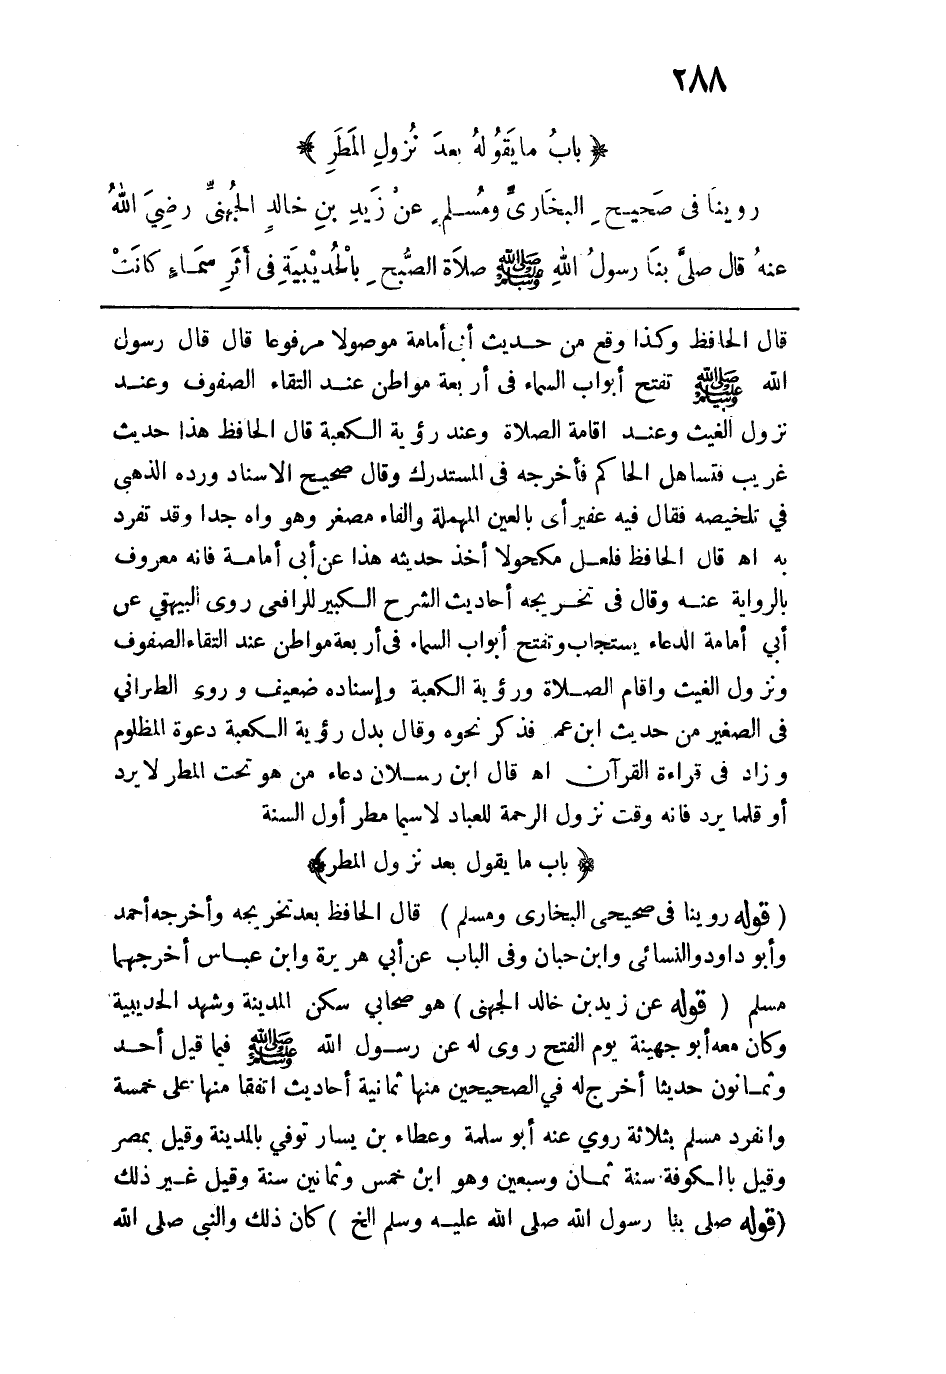 ٢٨٨
﴿ بابُ ما يَقُولُهُ بعدَ نُزولِ المَطَرِ ﴾
روينا فى صَحيحِ البخَارىِّ ومُسلمٍ عنْ زَيدِ بنِ خالدٍ الجُهنىِّ رضِيَ اللهُ
عنهُ قال صلىَّ بنَا رسولُ اللهِ ﷺ صلاَة الصُّبحِ بالْحُدَيْبيَةِ فى أثَرِ سمَاءٍ كانَتْ
قال الحافظ وكذا وقع من حديث أبى أمامة موصولا مرفوعا قال قال رسول
الله ﷺ تفتح أبواب السماء فى أربعة مواطن عند التقاء الصفوف وعند
نزول الغيث وعند اقامة الصلاة وعند رؤية الكعبة قال الحافظ هذا حديث
غريب فتساهل الحاكم فأخرجه فى المستدرك وقال صحيح الاسناد ورده الذهبى
في تلخيصه فقال فيه عفير أى بالعين المهملة والفاء مصغر وهو واه جدا وقد تفرد
به اه قال الحافظ فلعل مكحولا أخذ حديثه هذا عن أبى أمامة فانه معروف
بالرواية عنه وقال فى تخريجه أحاديث الشرح الكبير للرافعى روى البيهقي عن
أبي أمامة الدعاء يستجاب وتفتح أبواب السماء فى أربعة مواطن عند التقاء الصفوف
ونزول الغيث واقام الصلاة ورؤية الكعبة وإسناده ضعيف وروى الطبراني
فى الصغير من حديث ابن عمر فذكر نحوه وقال بدل رؤية الكعبة دعوة المظلوم
وزاد فى قراءة القرآن اه قال ابن رسلان دعاء من هو تحت المطر لا يرد
أو قلما يرد فانه وقت نزول الرحمة للعباد لاسيما مطر أول السنة
﴿ باب ما يقول بعد نزول المطر ﴾
( قوله روينا فى صحيحى البخارى ومسلم ) قال الحافظ بعد تخريجه وأخرجه أحمد
وأبو داود والنسائى وابن حبان وفى الباب عن أبي هريرة وابن عباس أخرجهما
مسلم ( قوله عن زيد بن خالد الجهنى ) هو صحابي سكن المدينة وشهد الحديبية
وكان معه أبو جهينة يوم الفتح روى له عن رسول الله ﷺ فيما قيل أحد
وثمانون حديثا أخرج له في الصحيحين منها ثمانية أحاديث اتفقا منها على خمسة
وانفرد مسلم بثلاثة روي عنه أبو سلمة وعطاء بن يسار توفي بالمدينة وقيل بمصر
وقيل بالكوفة سنة ثمان وسبعين وهو ابن خمس وثمانين سنة وقيل غير ذلك
(قوله صلى بنا رسول الله صلى الله عليه وسلم الخ ) كان ذلك والنبى صلى الله